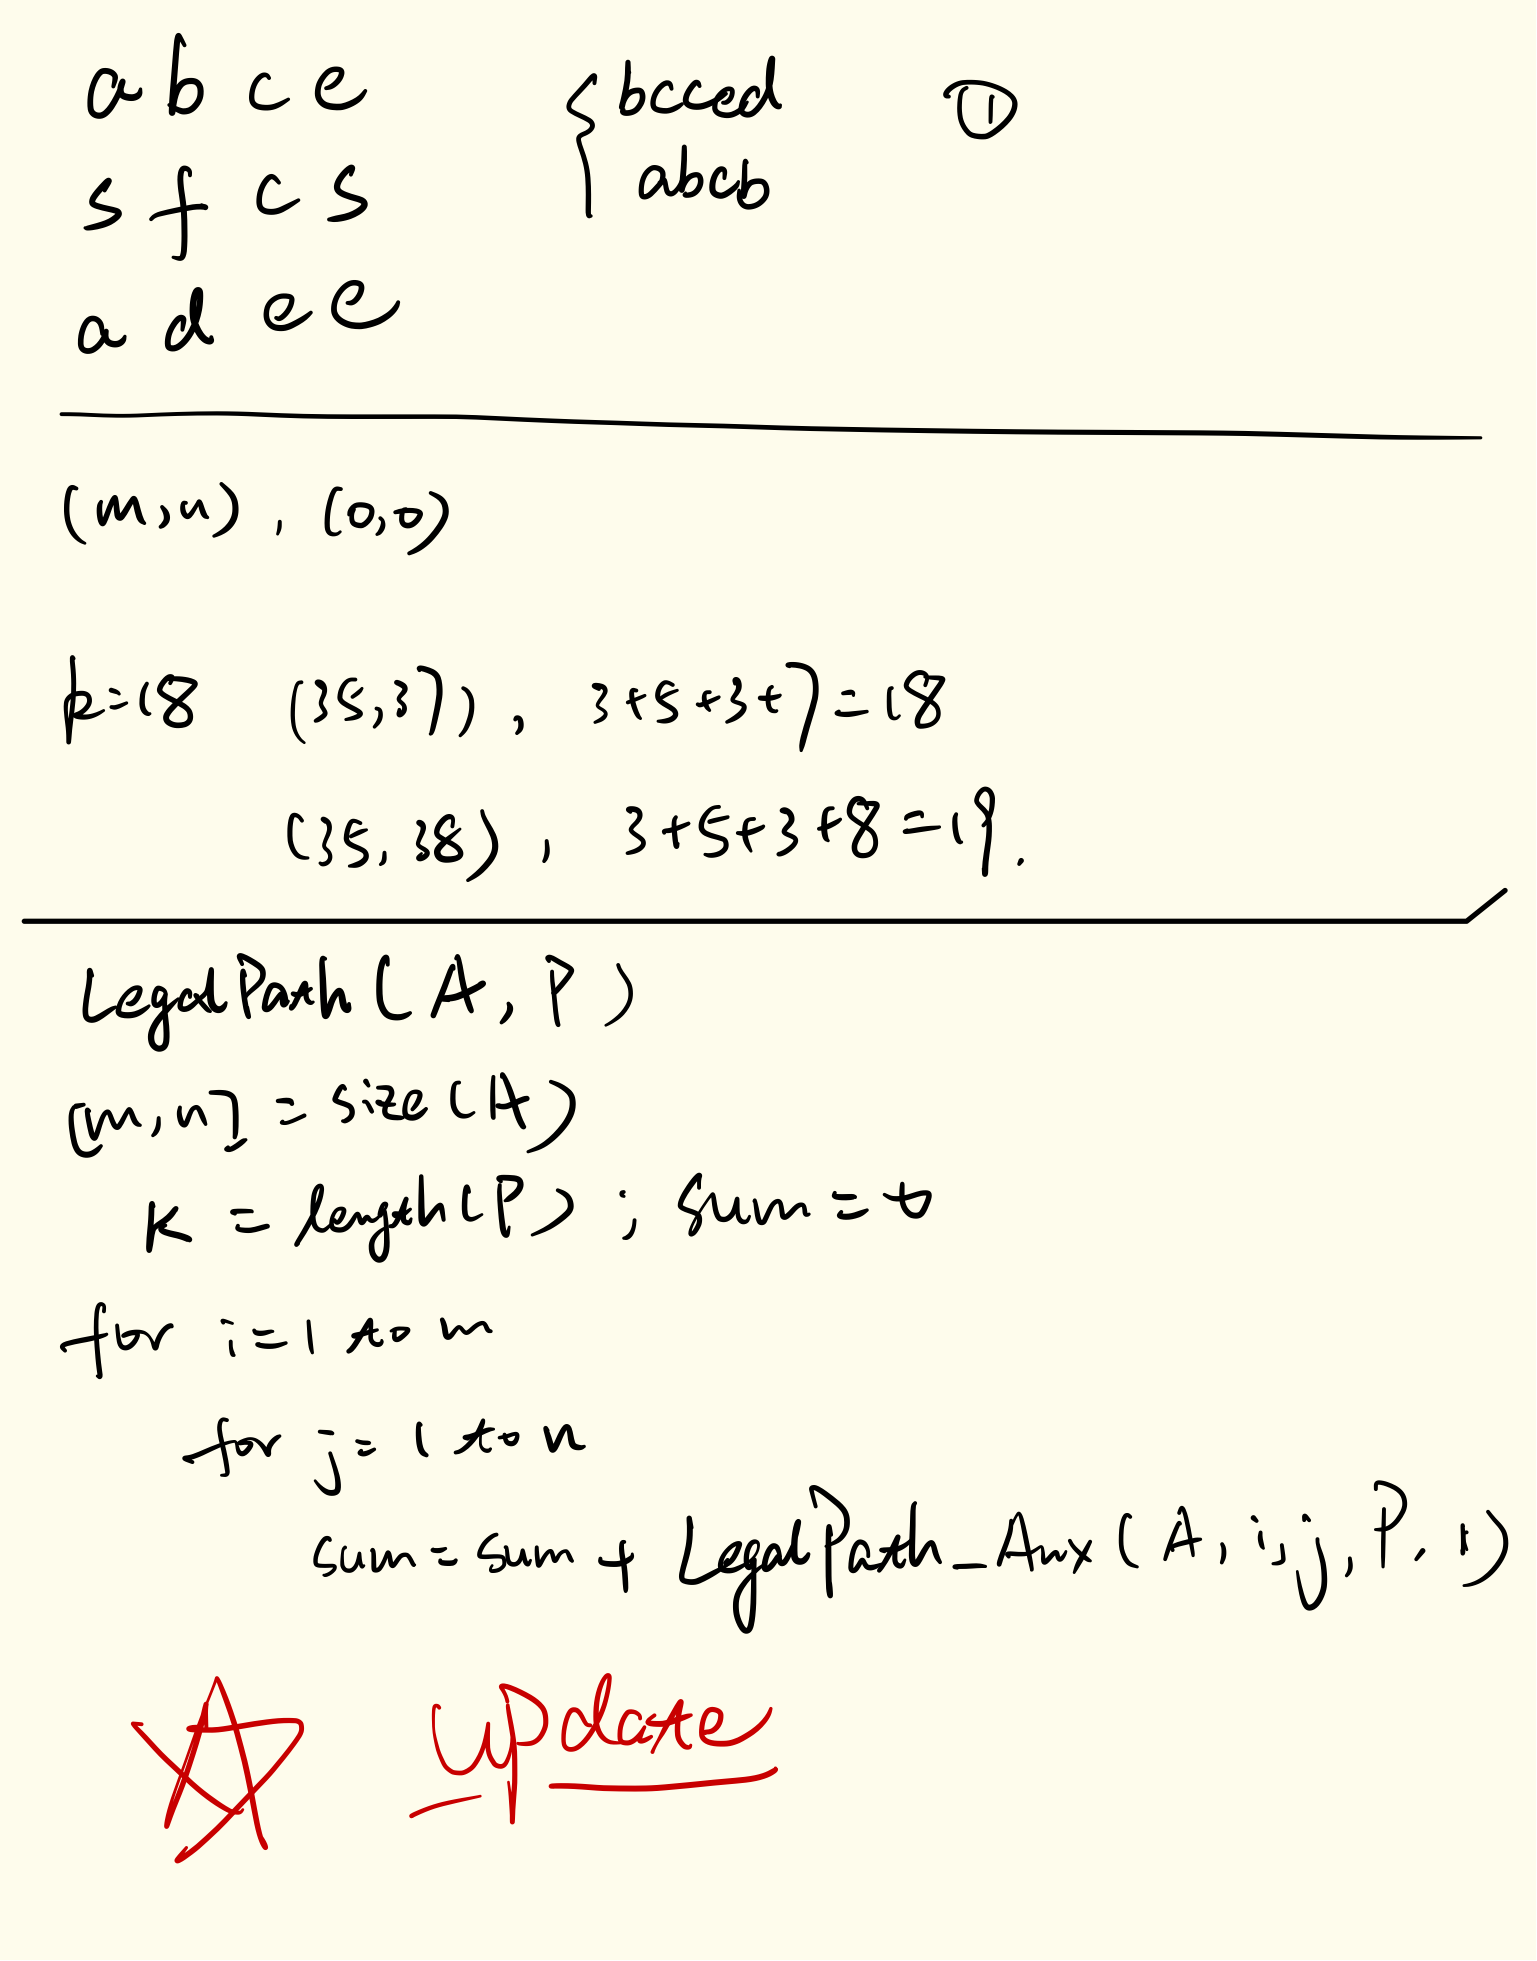 a b c e
s f c s
a d e e
{ bcced
abcb
①
(m,n), (0,0)
k=18 (35,37), 3+5+3+7=18
(35,38), 3+5+3+8=19.
LegalPath(A, P)
[m,n] = size(A)
K = length(P); sum=0
for i=1 to m
for j=1 to n
sum=sum + LegalPath_Aux(A, i, j, P, 1)
☆ update